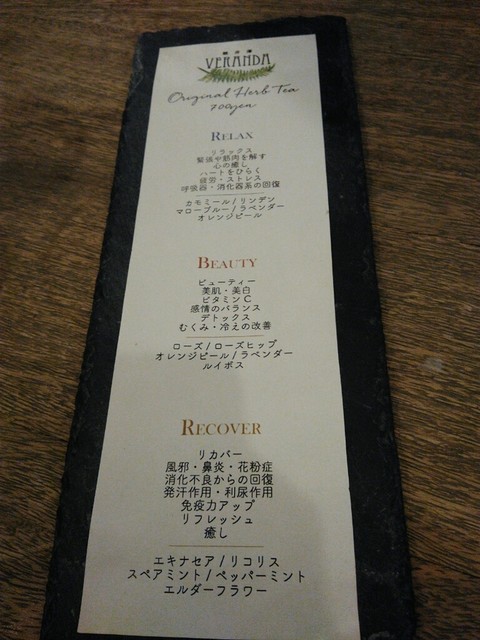 VERANDA
Original Herb Tea
700yen
RELAX
リラックス
緊張や筋肉を解す
心の癒し
ハートをひらく
疲労・ストレス
呼吸器・消化器系の回復
カモミール/リンデン
マローブルー/ラベンダー
オレンジピール
BEAUTY
ビューティー
美肌・美白
ビタミンC
感情のバランス
デトックス
むくみ・冷えの改善
ローズ/ローズヒップ
オレンジピール/ラベンダー
ルイボス
RECOVER
リカバー
風邪・鼻炎・花粉症
消化不良からの回復
発汗作用・利尿作用
免疫力アップ
リフレッシュ
癒し
エキナセア/リコリス
スペアミント/ペッパーミント
エルダーフラワー